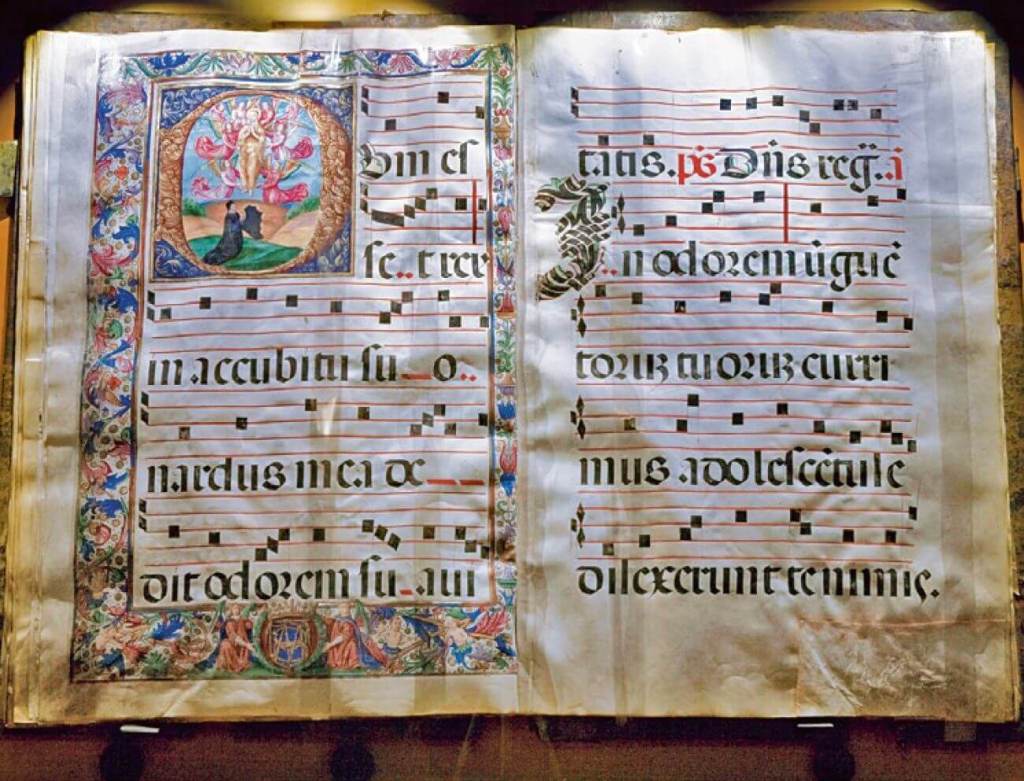 DVm eſ
ſe..t rex
in accubitu ſu_o..
nardus mea de__
dit odorem ſu_aui
tatis. p̄s Dn̄s reg̃..a
In odorem ūguē
toruꝫ tuoruꝫ curri
mus adoleſcētule
dilexerunt te nimis.